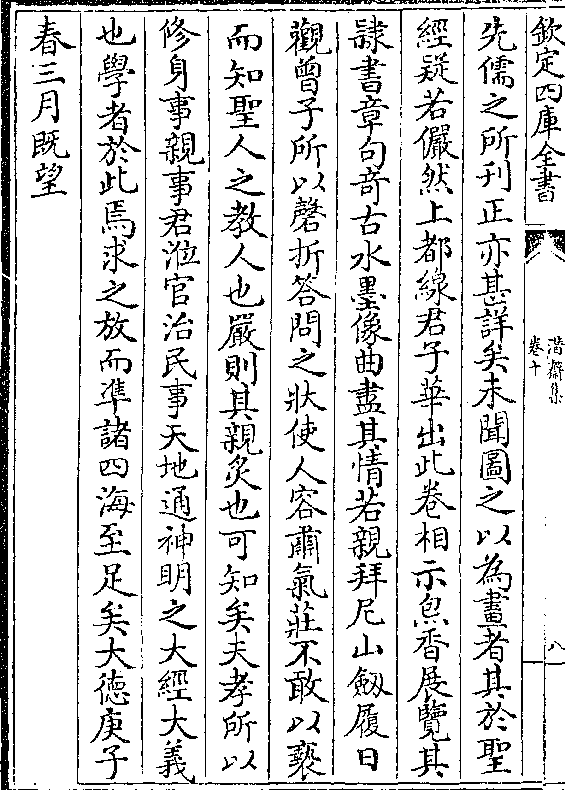 欽定四庫全書
潛齋集
卷十
八
先儒之所刋正亦甚詳矣未聞圖之以為畫者其於聖
經疑若儼然上都線君子華出此卷相示㷛香展覽其
隷書章句竒古水墨像曲盡其情若親拜尼山劔履日
觀曾子所以磬折答問之狀使人容肅氣莊不敢以䙝
而知聖人之教人也嚴則其親炙也可知矣夫孝所以
修身事親事君涖官治民事天地通神明之大經大義
也學者於此焉求之放而凖諸四海至足矣大德庚子
春三月既望